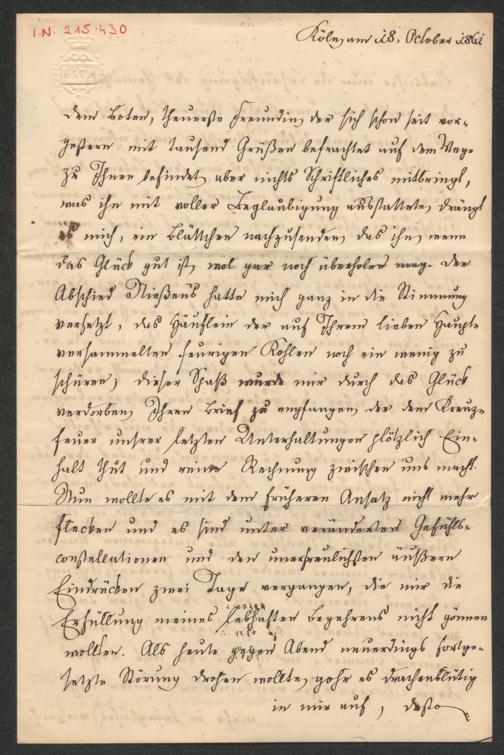 I.N. 215.430
Köln, am 18. October 1861
Dem Boten, theuerste Freundin, der sich schon seit vor-
gestern mit tausend Grüßen befrachtet auf dem Wege
zu Ihnen befindet, aber nichts Schriftliches mitbringt,
was ihn mit voller Beglaubigung ausstattete, drängt
es mich, ein Blättchen nachzusenden, das ihn, wenn
das Glück gut ist, wol gar noch überholen mag. Der
Abschied Nießens hatte mich ganz in die Stimmung
versetzt, das Häuflein der auf Ihrem lieben Haupte
versammelten feurigen Kohlen noch ein wenig zu
schüren; dieser Spaß wurde mir durch das Glück
verdorben, Ihren Brief zu empfangen, der dem Kreuz-
feuer unsrer letzten Unterhaltungen plötzlich Ein-
halt thut und reine Rechnung zwischen uns macht.
Nun wollte es mit dem früheren Ansatz nicht mehr
flecken und es sind unter veränderten Gefühls-
constellationen und den unerfreulichsten äußern
Eindrücken zwei Tage vergangen, die mir die
Erfüllung meines lebhaften Begehrens nicht gönnen
wollten. Als heute gegen Abend neuerdings fortge-
setzte Störung drohen wollte, gohr es drachenblütig
in mir auf, desto